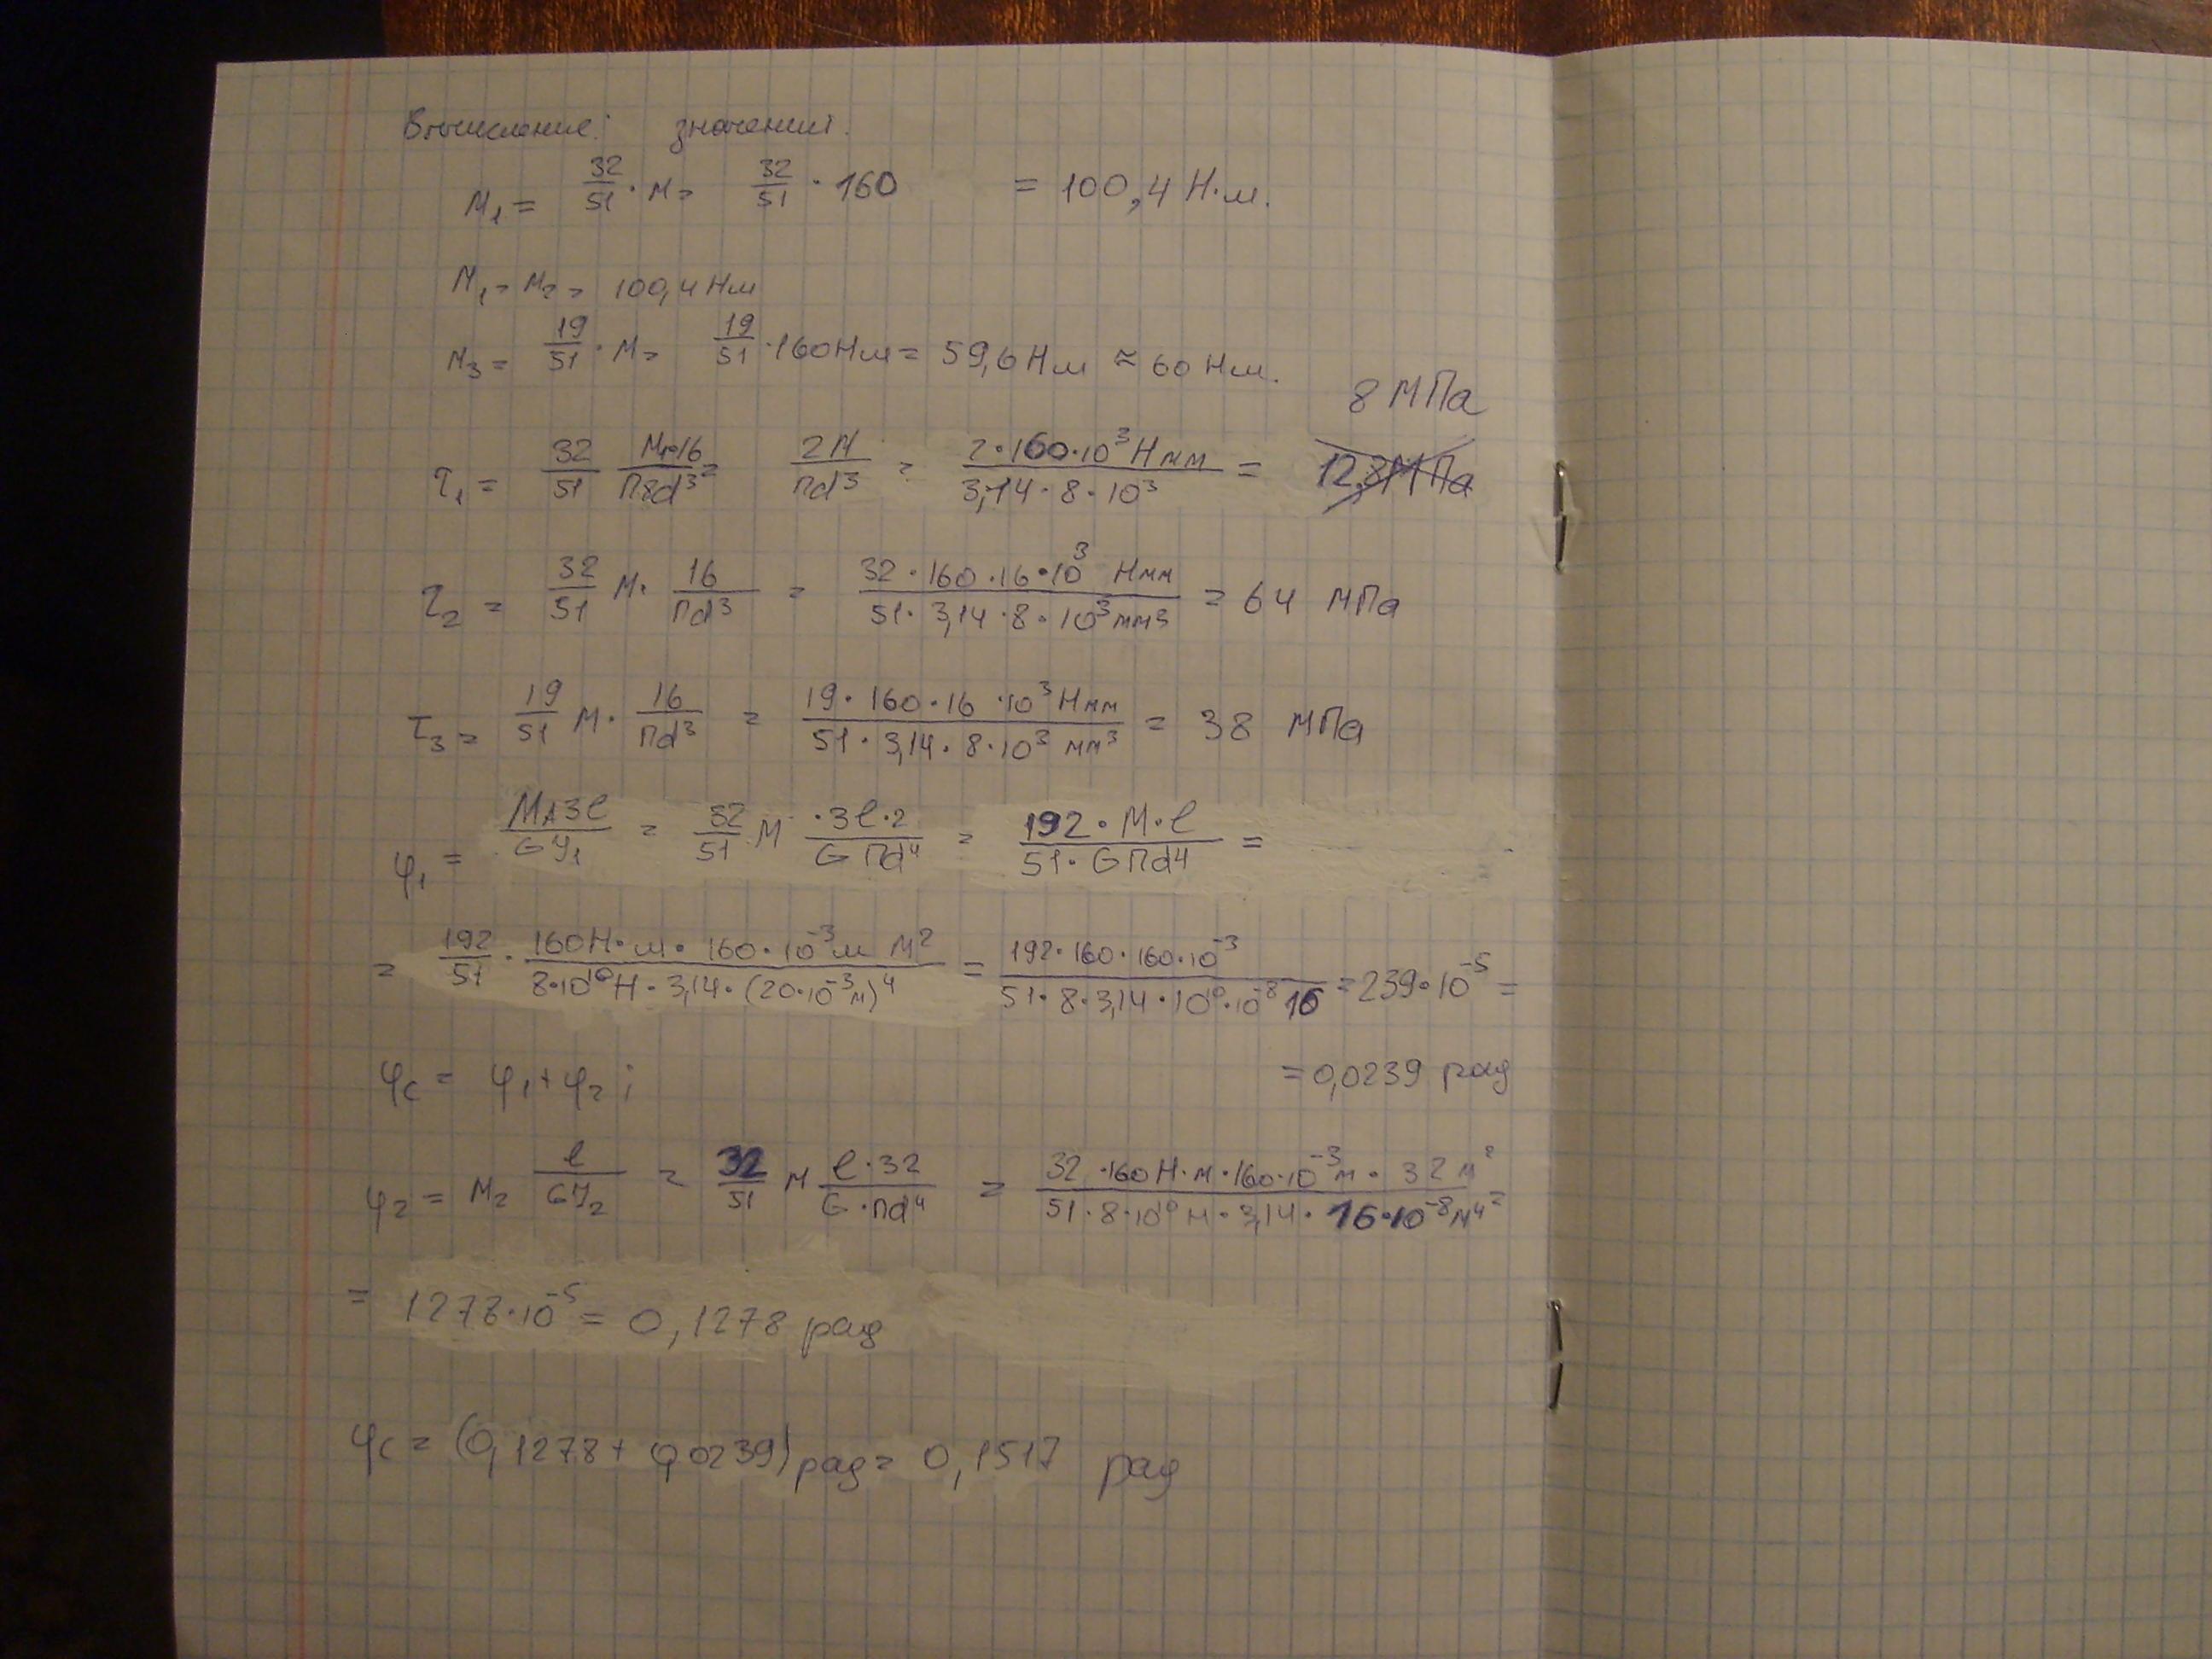 Вычисление значений.
M₁ = 32/51 · M = 32/51 · 160 = 100,4 Н·м.
M₁ = M₂ = 100,4 Нм
M₃ = 19/51 · M = 19/51 · 160Нм = 59,6 Нм ≈ 60 Нм.
8 МПа
τ₁ = 32/51 M·16/П8d³ = 2M/пd³ = 2·160·10³Нмм/3,14·8·10³ = 12,8МПа
τ₂ = 32/51 M · 16/пd³ = 32·160·16·10³ Нмм/51·3,14·8·10³мм³ = 64 МПа
τ₃ = 19/51 M · 16/пd³ = 19·160·16·10³Нмм/51·3,14·8·10³ мм³ = 38 МПа
φ₁ = MA3l/GY₁ = 32/51 M ·3l·2/GПd⁴ = 192·M·l/51·GПd⁴ =
= 192/51 · 160Н·м·160·10⁻³м м²/8·10¹⁰Н·3,14·(20·10⁻³м)⁴ = 192·160·160·10⁻³/51·8·3,14·10¹⁰·10⁻⁸ 16 = 239·10⁻⁵ =
φc = φ₁+φ₂; = 0,0239 рад
φ₂ = M₂ l/GY₂ = 32/51 M l·32/G·пd⁴ = 32·160Н·м·160·10⁻³м·32м²/51·8·10¹⁰Н·3,14·16·10⁻⁸м⁴²
= 1278·10⁻⁵ = 0,1278 рад
φc = (0,1278+0,0239)рад = 0,1517 рад